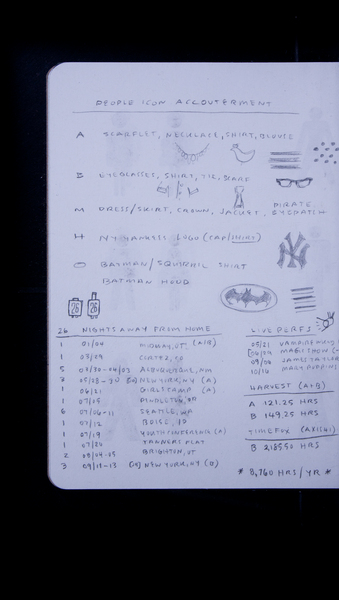 PEOPLE ICON ACCOUTERMENT
A SCARFLET, NECKLACE, SHIRT, BLOUSE
B EYEGLASSES, SHIRT, TIE, BEARD
M DRESS/SKIRT, CROWN, JACKET, PIRATE EYEPATCH
H NY YANKEES LOGO (CAP/SHIRT)
O BATMAN/SQUIRREL SHIRT
BATMAN HOOD
26 26
26 NIGHTS AWAY FROM HOME
1 01/04 MIDWAY, UT (A/B)
1 03/09 CORTEZ, CO
5 03/30-04/03 ALBUQUERQUE, NM
NEW YORK, NY (A)
1 06/21 GIRLS CAMP (A)
1 07/05 PENDLETON, OR
6 07/06-11 SEATTLE, WA
1 07/12 BOISE, ID
1 07/19 YOUTH CONFERENCE (A)
1 07/26 TANNERS FLAT
2 BRIGHTON, UT
3 NEW YORK, NY (B)
LIVE PERFS
05/21
MAGIC SHOW
JAMES TAYLOR
10/16 MARY POPPINS
HARVEST (A+B)
A 121.25 HRS
B 149.25 HRS
TIMEFOX (AXIS41)
B 2185.50 HRS
* 8,760 HRS/YR *